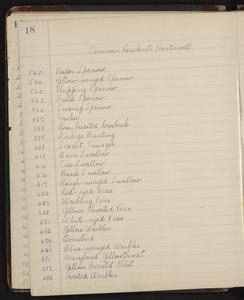 1
18
Summer Residents (continued)
540 Vesper Sparrow
546 Yellow-winged Sparrow
560 Chipping Sparrow
563 Field Sparrow
584 Swamp Sparrow
587 Towhee
595 Rose breasted Grosbeak
598 Indigo Bunting
608 Scarlet Tanager
613 Barn Swallow
614 Tree Swallow
616 Bank Swallow
617 Rough-winged Swallow
624 Red-eyed Vireo
627 Warbling Vireo
628 Yellow throated Vireo
631 White-eyed Vireo
652 Yellow Warbler
674 Ovenbird
641 Blue-winged Warbler
681 Maryland Yellowthroat
683 Yellow breasted Chat
684 Hooded Warbler